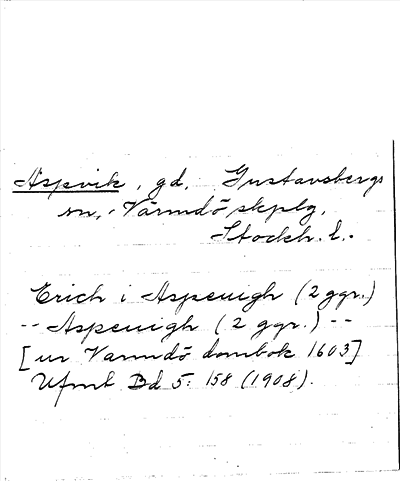 Aspvik, gd, Gustavsbergs
sn, Värmdö skplg,
Stockh. l.
Erich i Aspeuigh (2 ggr.)
-- Aspeuigh (2 ggr.) --
[ur Varmdö dombok 1603]
Ufmt Bd 5: 158 (1908).